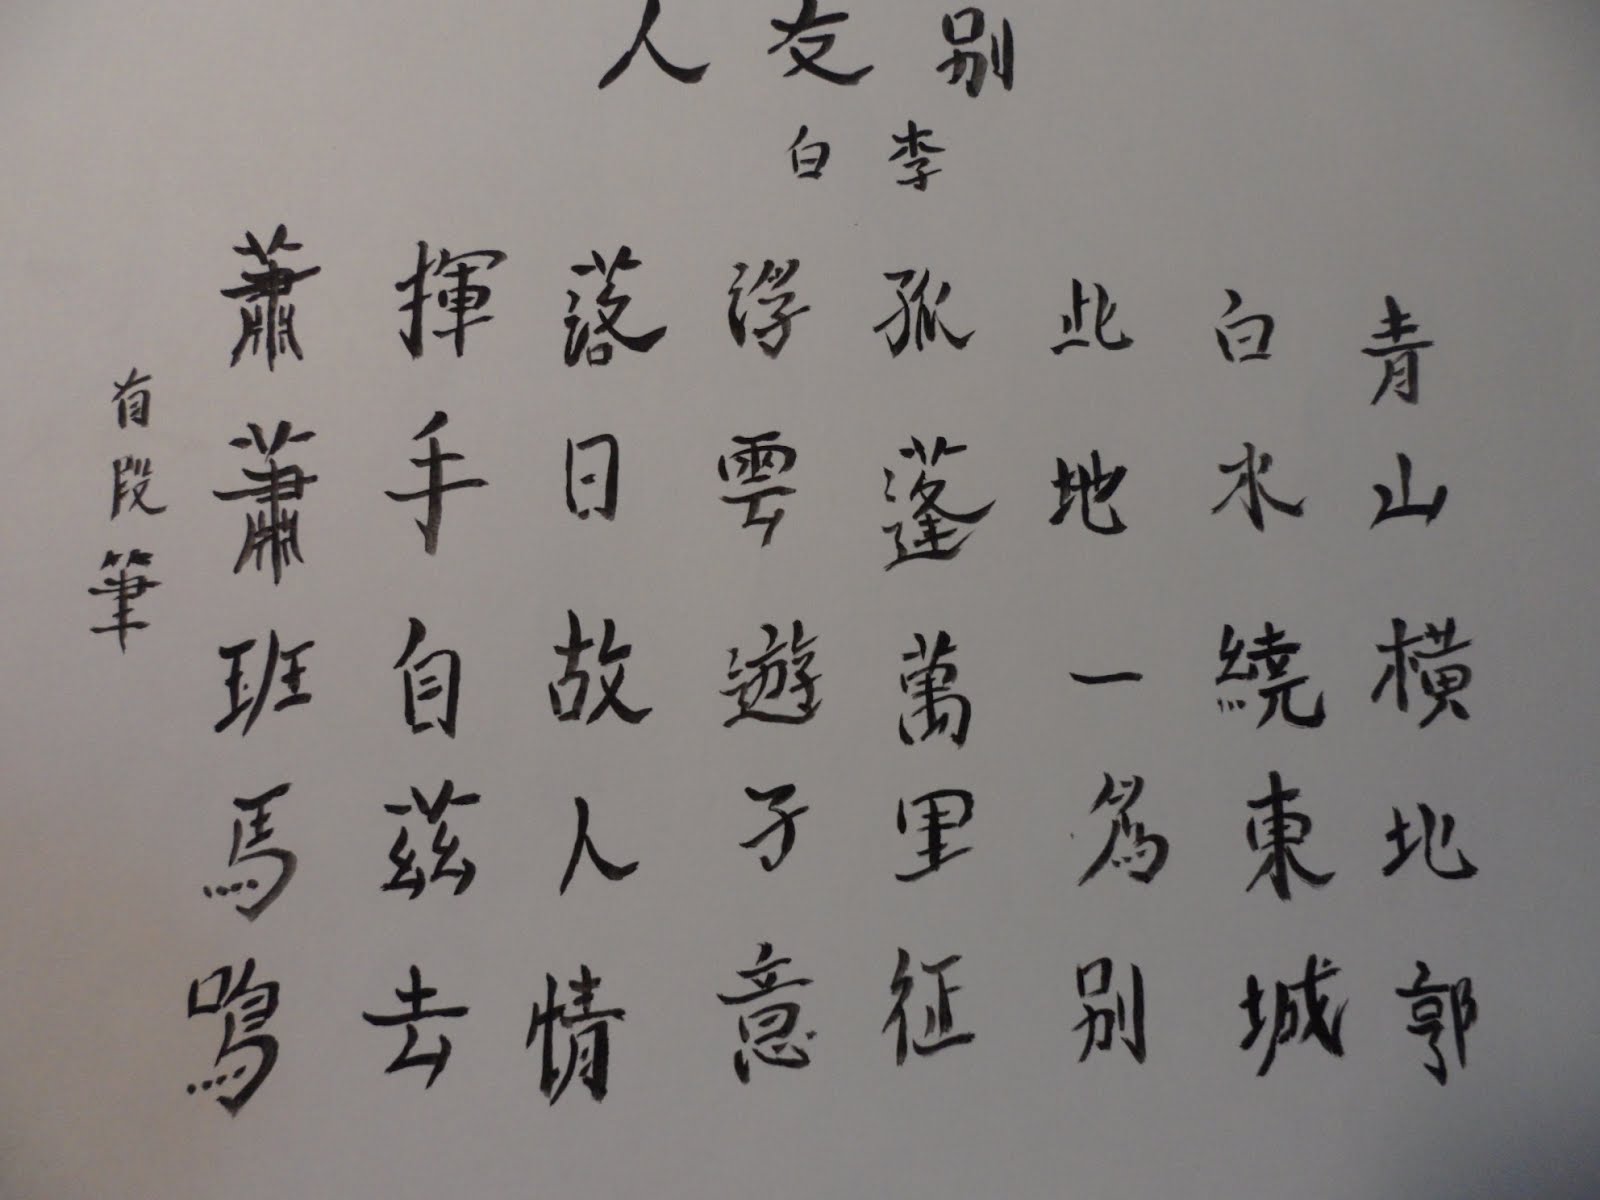 別友人
李白
青山橫北郭
白水繞東城
此地一為別
孤蓬萬里征
浮雲遊子意
落日故人情
揮手自茲去
蕭蕭班馬鳴
有段筆